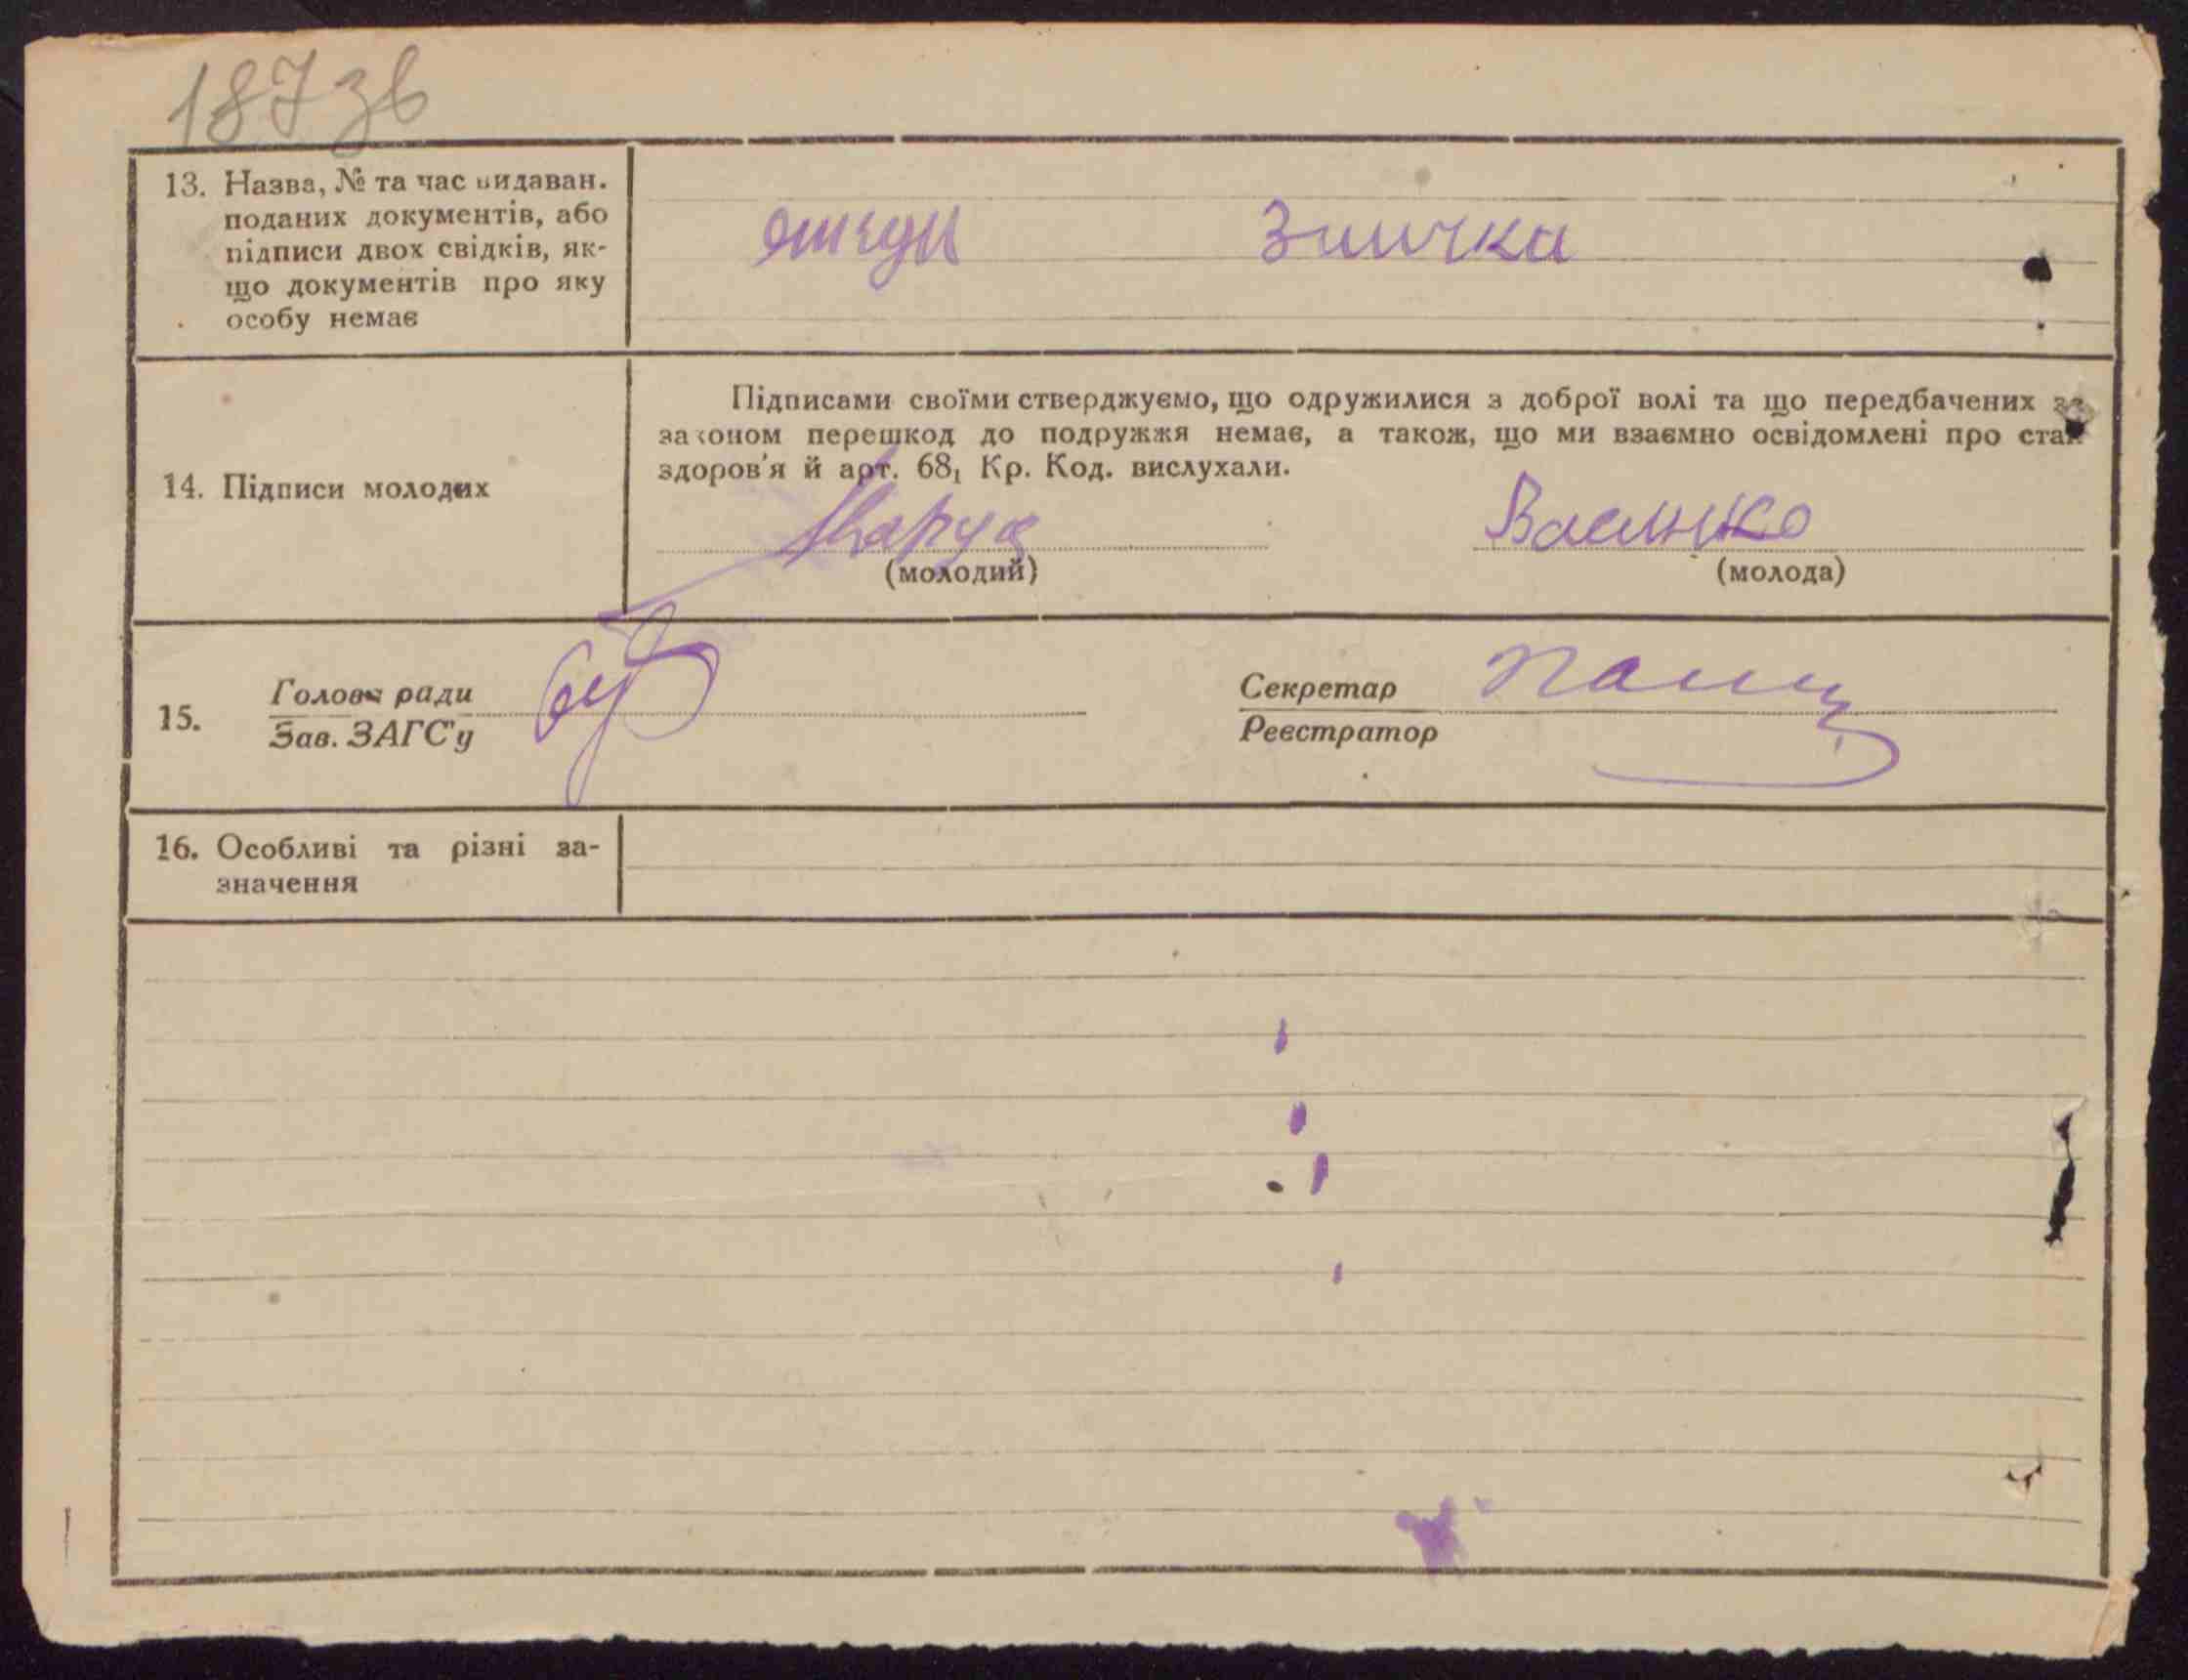 187 зв
13. Назва, № та час видаван.
поданих документів, або
підписи двох свідків, як-
що документів про яку
особу немає
Підписами своїми стверджуємо, що одружилися з доброї волі та що передбачених за
законом перешкод до подружжя немає, а також, що ми взаємно освідомлені про стан
здоров'я й арт. 68₁ Кр. Код. вислухали.
14. Підписи молодих
(молодий)
(молода)
15.
Голова ради
Зав. ЗАГС'у
Секретар
Реєстратор
16. Особливі та різні за-
значення